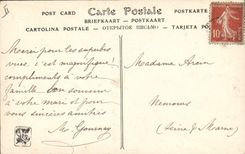 POST CARD Carte Postale POSTKARTE
BRIEFKAART - POSTKAART
CARTOLINA POSTALE - ОТКРЫТОЕ ПИСЬМО - TARJETA PO
10
Merci pour les superbes
vues, c'est magnifique!
compliments à votre
famille. bon souvenir
à votre mari et pour vous
sincères amitiés
Madame
Nemours
(Seine & Marne)